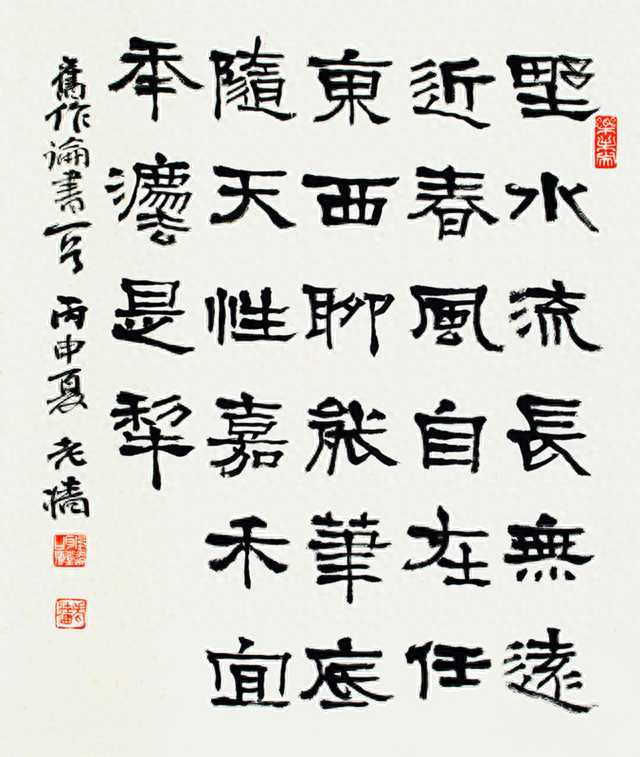 野水流長無遠
近春風自在任
東西聊能筆底
隨天性嘉禾宜
年灋是犁
舊作論書一首 丙申夏 老
樂未央